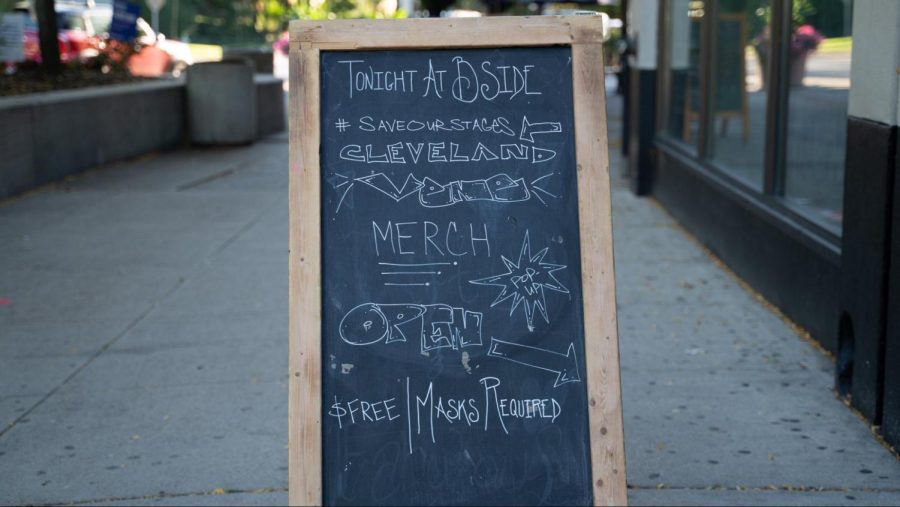 TONIGHT AT BSIDE
# SAVEOURSTAGES
CLEVELAND
VENUE
MERCH
POP-
UP!
OPEN
$FREE | MASKS REQUIRED